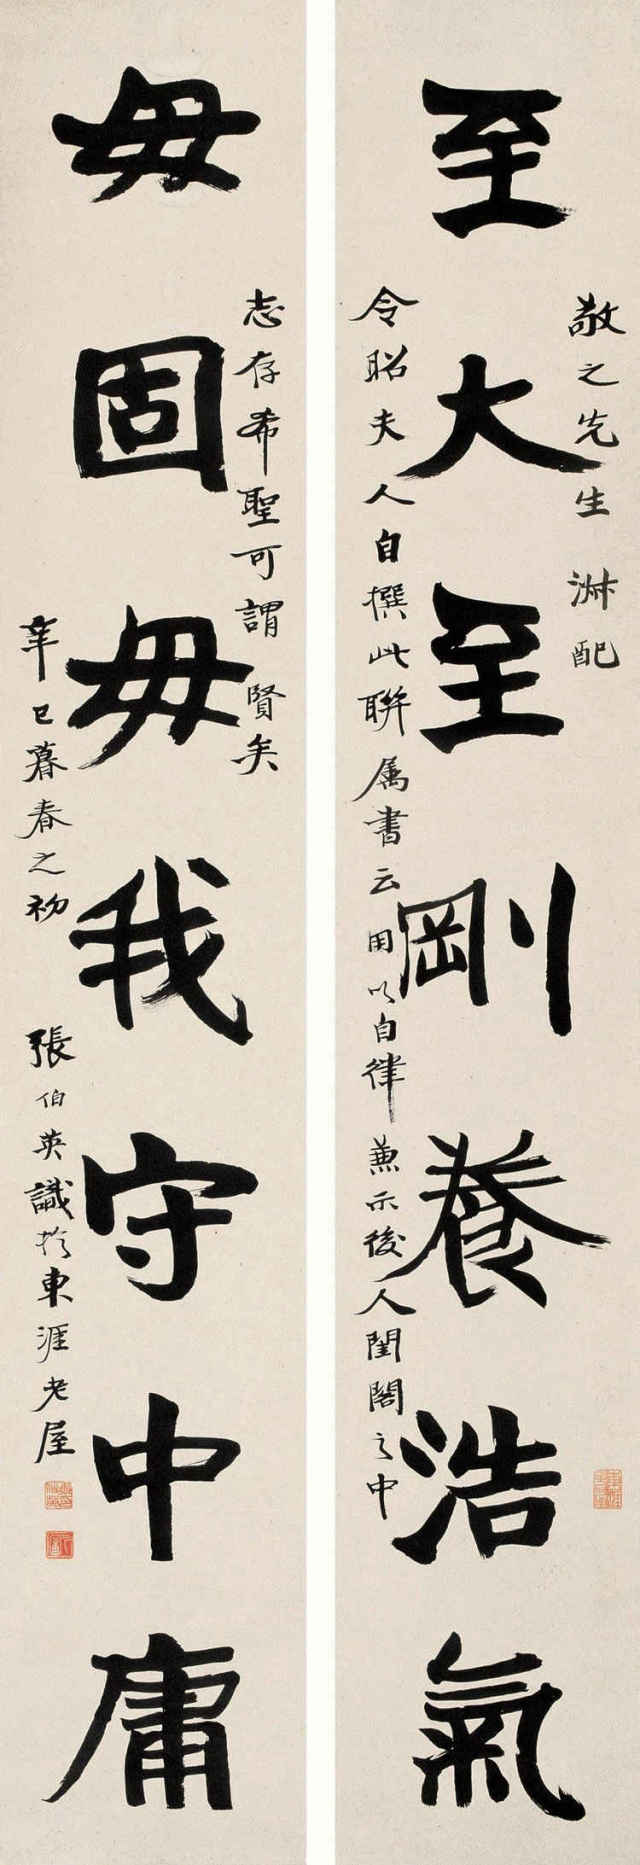 至大至剛養浩氣
敬之先生淋配
令昭夫人自撰此聯属書云用以自律兼示後人閨閣之中
毋固毋我守中庸
志存希聖可謂賢矣
辛巳暮春之初
張伯英識於東涯老屋